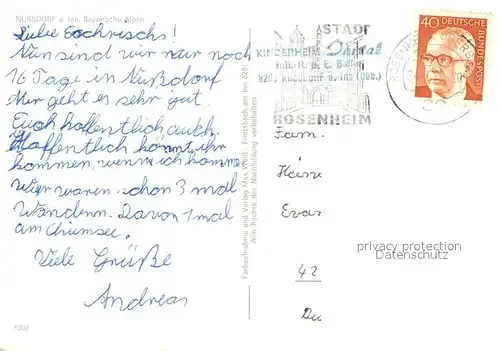 NUSSDORF a. Inn, Bayerische Alpen
Liebe Eschrischs!
Nun sind wir nur noch
16 Tage in Nußdorf
Mir geht es sehr gut.
Euch hoffentlich auch.
Hoffentlich könnt ihr
kommen, wenn ich komme
Wir waren schon 3 mal
Wandern. Davon 1 mal
am Chiemsee.
Viele Grüße
Andreas
1202
Farbaufnahme und Verlag Max Fintsbach am Inn
Alle Rechte der Nachbildung vorbehalten
STADT
KINDERHEIM
Inh. R. u. E.
ROSENHEIM
ROSENHEIM
40 DEUTSCHE
BUNDESPOST
Fam.
Heinz
Evas
42
Du
privacy protection
watermark